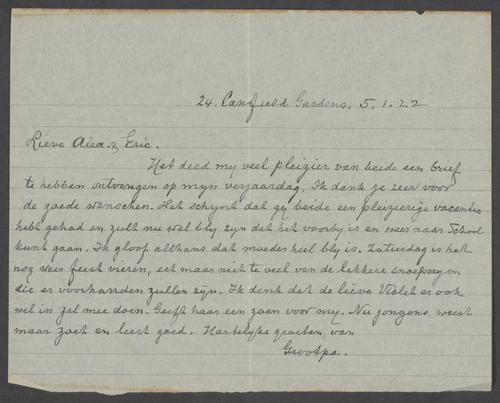 24. Canfield Gardens, 5.1.22
Lieve Alex. & Eric.
Het deed my veel pleizier van beide een brief
te hebben ontvangen op myn verjaardag, Ik dank je zeer voor
de goede wenschen. Het schynt dat gy beide een pleizierige vacantie
hebt gehad en zult nu wel bly zyn dat het voorby is en weer naar School
kunt gaan. Ik gloof althans dat moeder heel bly is. Zaturdag is het
nog weer feest vieren, eet maar niet te veel van de lekkere snoeperyen
die er voorhanden zullen zyn. Ik denk dat de lieve Violet er ook
wel in zal mee doen. Geeft haar een zoen voor my. Nu jongens, weest
maar zoet en leert goed. Hartelyke groeten, van
Grootpa.